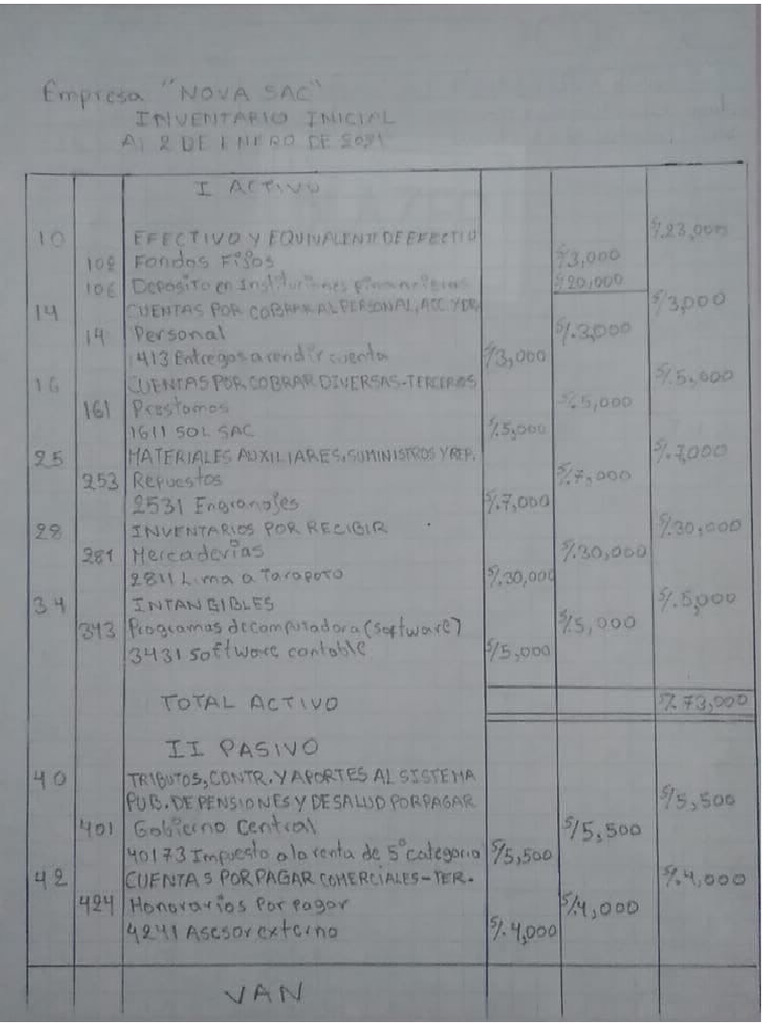 Empresa "NOVA SAC"
INVENTARIO INICIAL
Al 2 DE ENERO DE 2021
I ACTIVO
10 EFECTIVO Y EQUIVALENTE DE EFECTIVO S/.23,000
102 Fondos Fijos S/3,000
106 Deposito en Instituciones financieras S/20,000
14 CUENTAS POR COBRAR AL PERSONAL, ACC. Y DIR. S/3,000
14 Personal S/.3,000
1413 Entregas a rendir cuenta S/3,000
16 CUENTAS POR COBRAR DIVERSAS-TERCEROS S/.5,000
161 Prestamos S/.5,000
1611 SOL SAC S/.5,000
25 MATERIALES AUXILIARES, SUMINISTROS Y REP. S/.7,000
253 Repuestos S/.7,000
2531 Engranajes S/.7,000
28 INVENTARIOS POR RECIBIR S/.30,000
281 Mercaderias S/.30,000
2811 Lima a Tarapoto S/.30,000
34 INTANGIBLES S/.5,000
343 Programas de computadora (software) S/5,000
3431 Software contable S/5,000
TOTAL ACTIVO S/.73,000
II PASIVO
40 TRIBUTOS, CONTR. Y APORTES AL SISTEMA
PUB. DE PENSIONES Y DE SALUD POR PAGAR S/5,500
401 Gobierno Central S/5,500
40173 Impuesto a la renta de 5° categoria S/5,500
42 CUENTAS POR PAGAR COMERCIALES-TER. S/.4,000
424 Honorarios Por Pagar S/.4,000
4241 Asesor externo S/.4,000
VAN